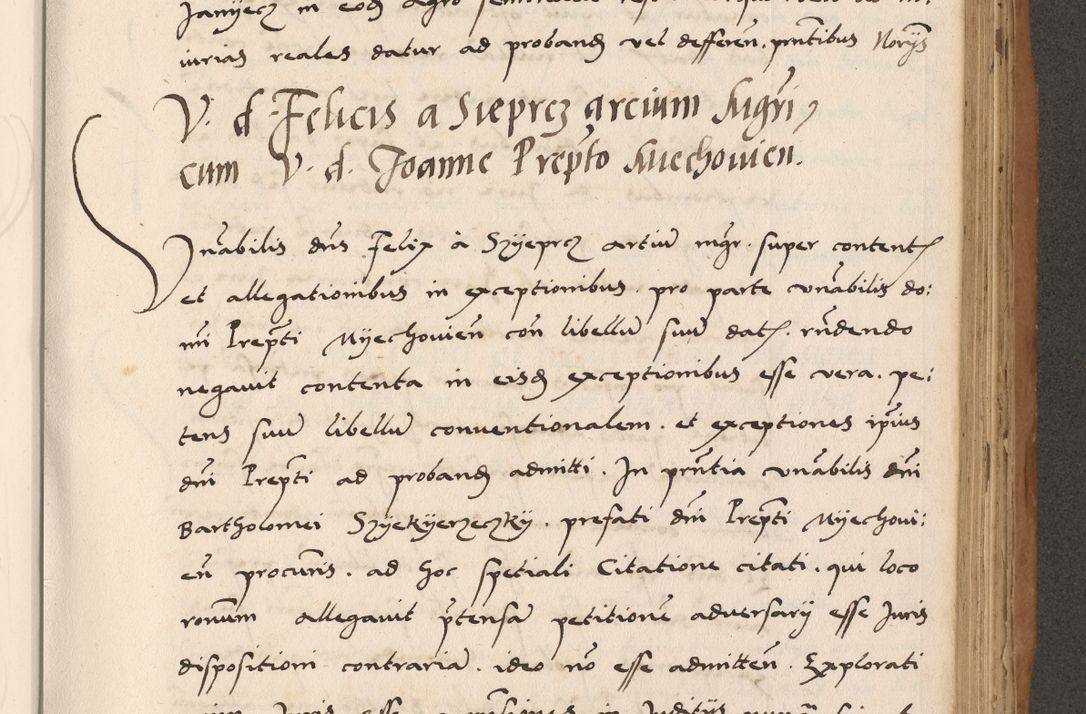 Janyecz in eodem agro
iurias reales datur ad proband vel defferen. pntibus Norys
V. d. Felicis a Sieprcz arcium Mgri
cum V. d. Joanne Prepto Miechovien.
Vnabilis dns Felix à Szyeprcz artiu mgr. super content
et allegationibus in exceptionibus. pro parte vnabilis do:
mi Prepti Myechovien con libellu suu dat. rndendo
negavit contenta in eisd exceptionibus esse vera. pe:
tens suu libellu conventionalem. et exceptiones ipius
dni Prepti ad proband admitti. In pntia vnabilis dni
Bartholomei Szyekyerzeczky. prefati dni Prepti Myechovi:
en procuris. ad hoc spetiali Citatione citati. qui loco
ronum allegavit ptensa petitione adversarij esse Juris
dispositioni contraria. ideo no esse admitten. Explorati